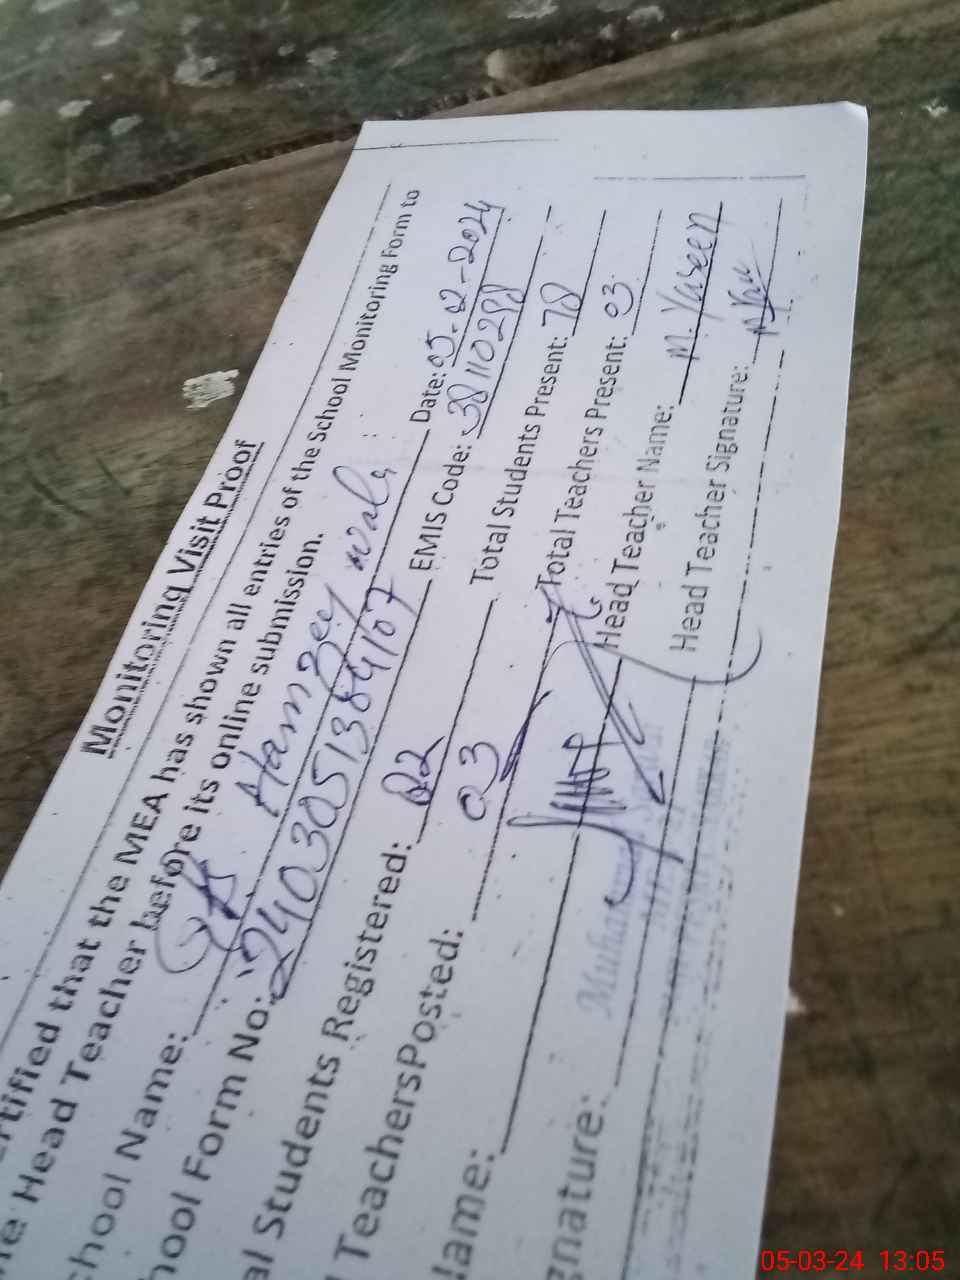 Monitoring Visit Proof
ertified that the MEA has shown all entries of the School Monitoring Form to
he Head Teacher before its online submission.
chool Name: Hamzey wala Date: 05-02-2024
hool Form No: 240305138467 EMIS Code: 38110298
al Students Registered: 82 Total Students Present: 78
TeachersPosted: 03 Total Teachers Present: 03
lame: Head Teacher Name: M. Yaseen
gnature: Head Teacher Signature:
05-03-24 13:05